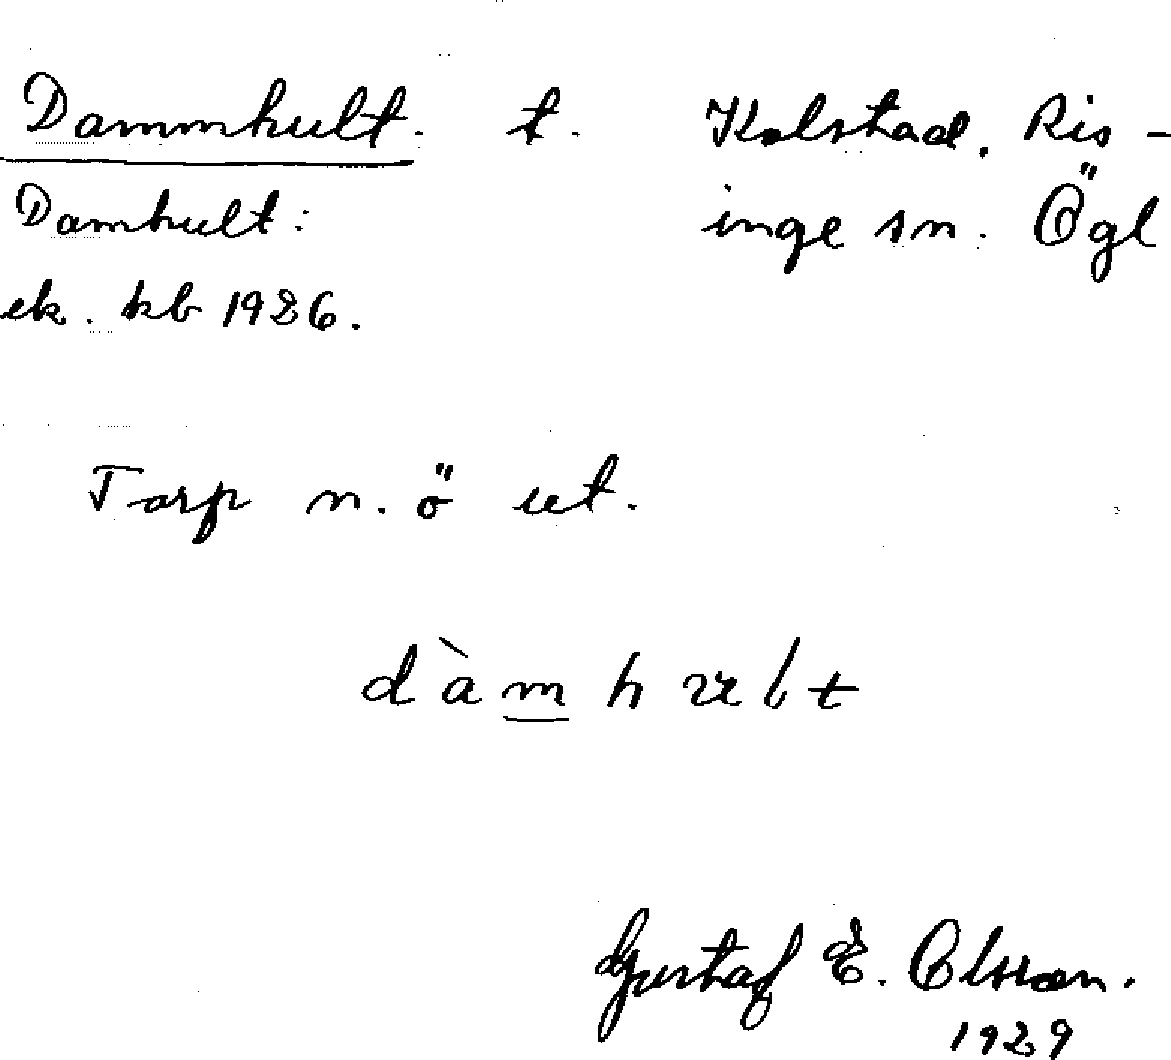 Dammhult. t. Kolstad. Ris-
Damhult: inge sn. Ögl
ek. kb 1926.
Torp n. ö ut.
Gustaf E. Olsson.
1929